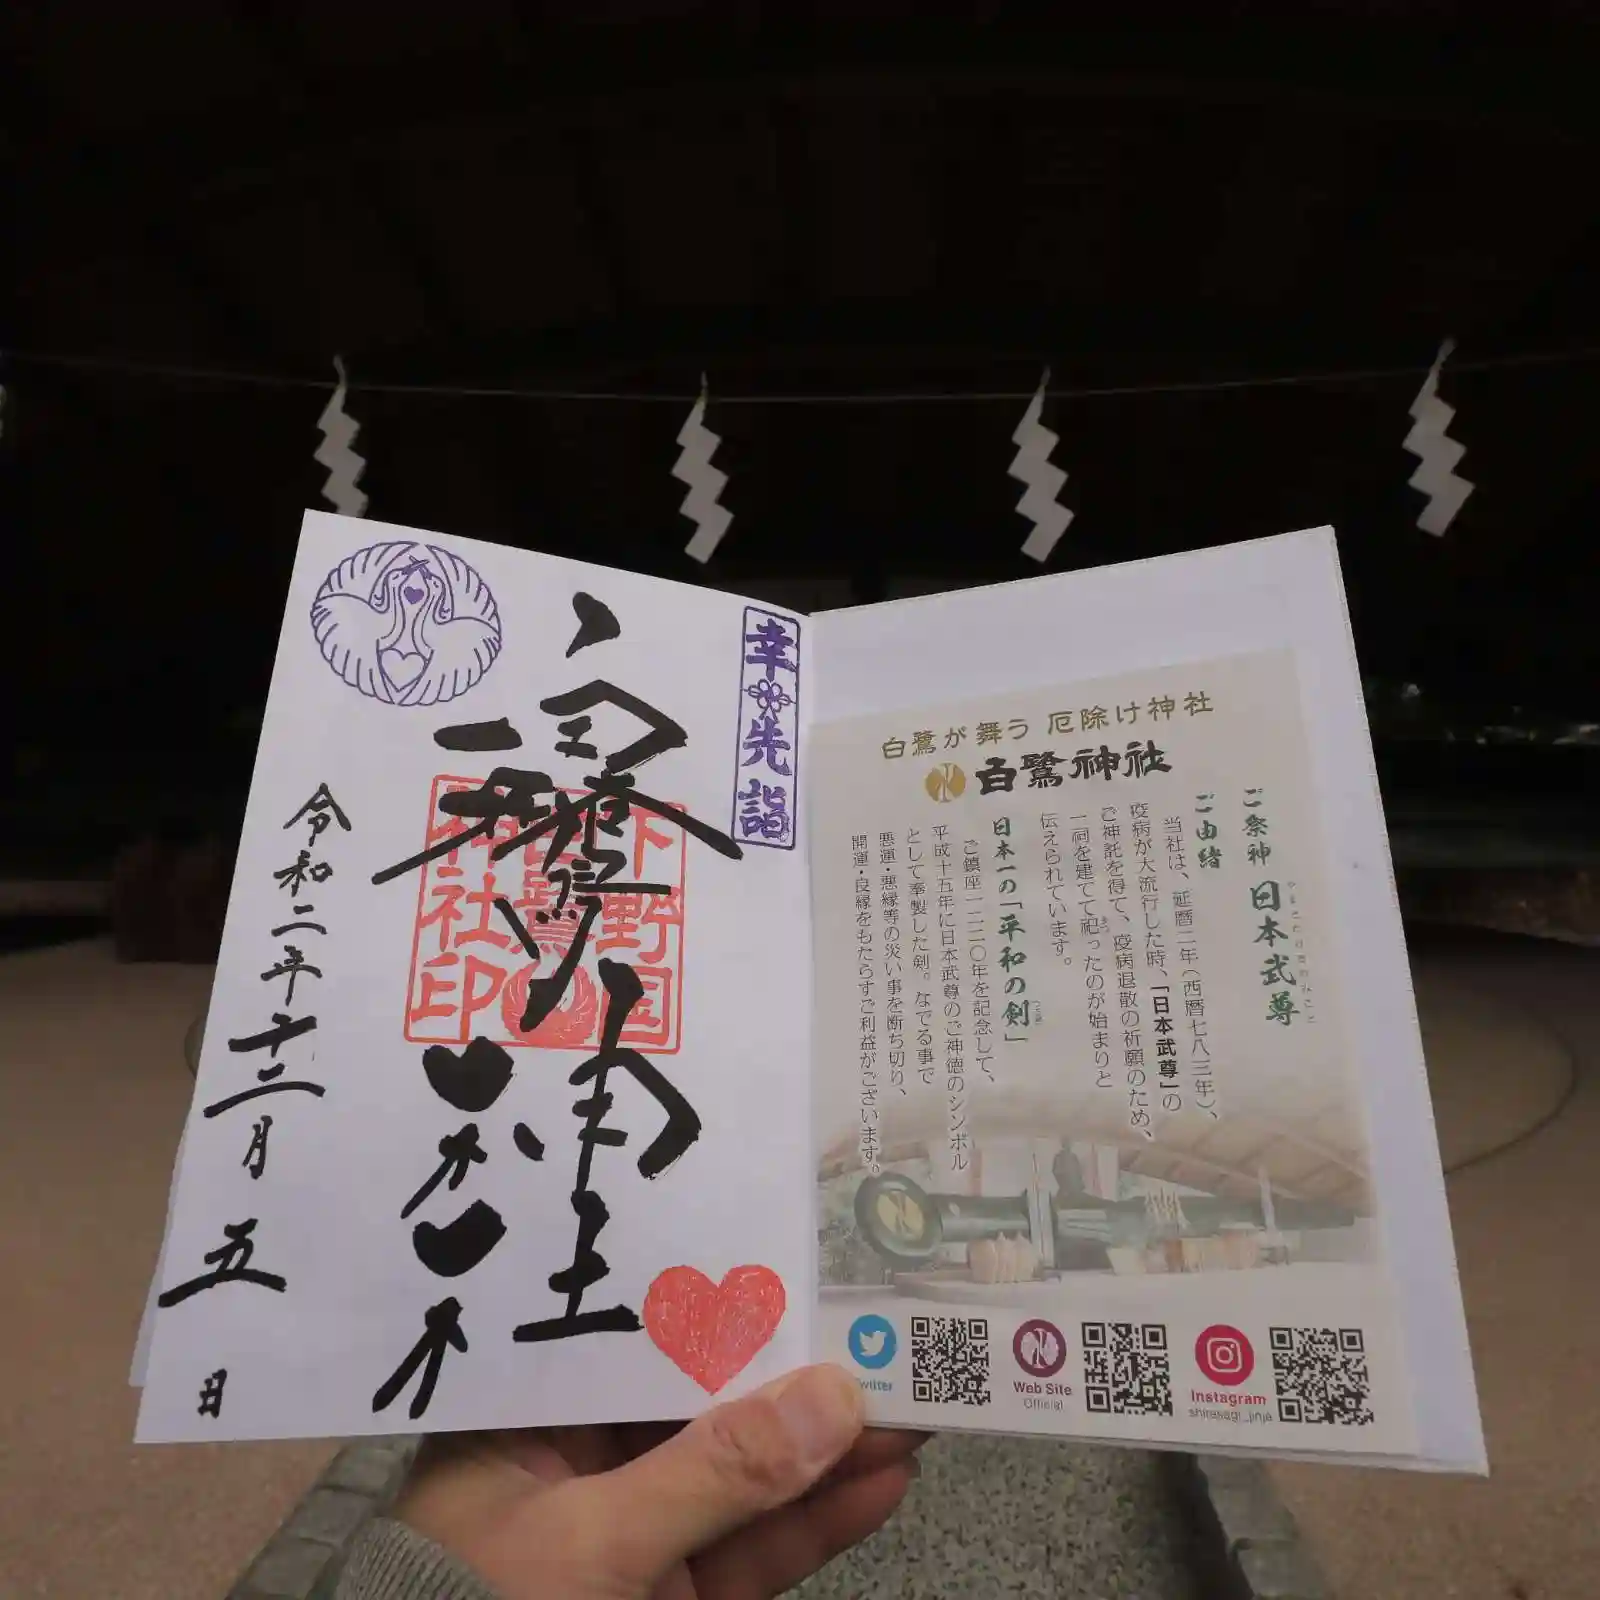 幸先詣
白鷺神社
下野国
白鷺
神社印
令和二年十二月五日
白鷺が舞う 厄除け神社
白鷺神社
ご祭神 日本武尊
やまとたけるのみこと
ご由緒
当社は、延暦二年(西暦七八三年)、
疫病が大流行した時、「日本武尊」の
ご神託を得て、疫病退散の祈願のため、
一祠を建てて祀ったのが始まりと
まつ
伝えられています。
日本一の「平和の剣」
つるぎ
ご鎮座一二二〇年を記念して、
平成十五年に日本武尊のご神徳のシンボル
として奉製した剣。なでる事で
悪運・悪縁等の災い事を断ち切り、
開運・良縁をもたらすご利益がございます。
Twitter
Web Site
Official
Instagram
shirasagi_jinja